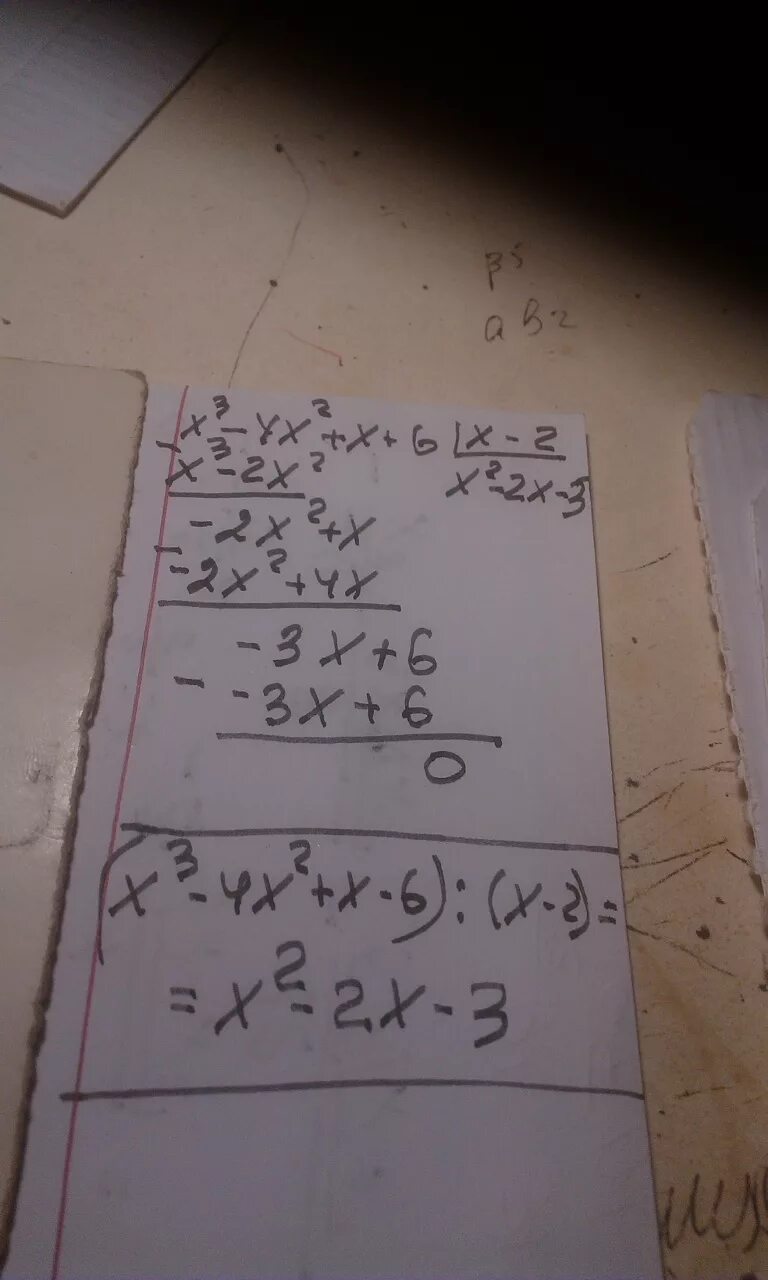 β⁵
ab2
-x³-4x²+x+6 |x-2
x³-2x² x²-2x-3
- -2x²+x
-2x²+4x
-3x+6
- -3x+6
0
(x³-4x²+x-6):(x-2)=
=x²-2x-3